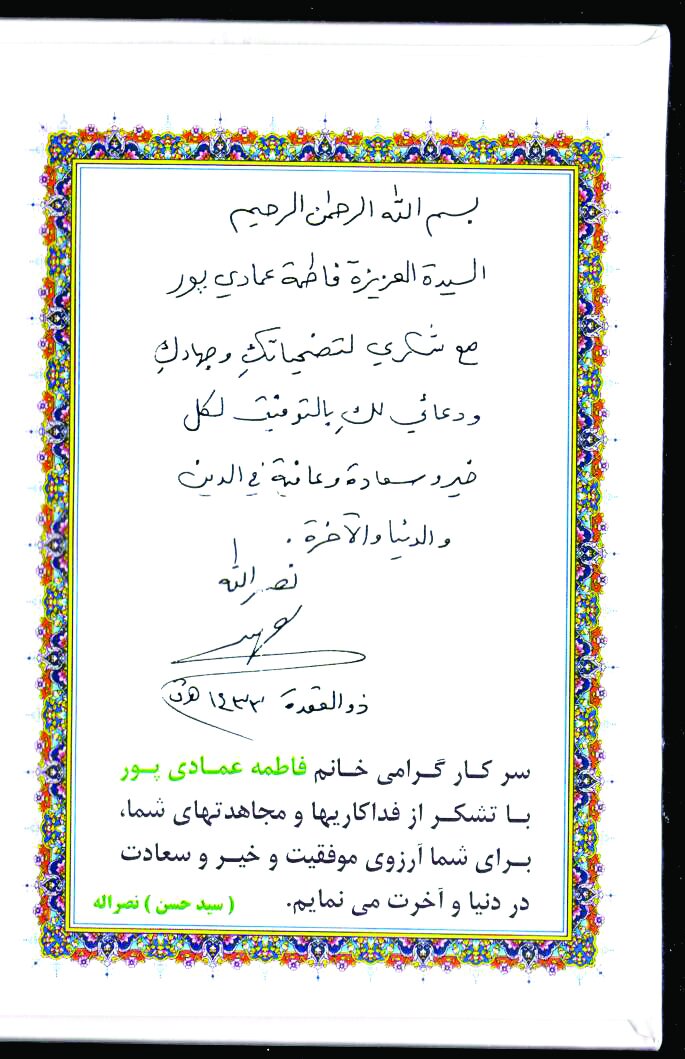 بسم الله الرحمن الرحيم
السيدة العزيزة فاطمة عمادي پور
مع شكري لتضحياتكِ وجهادكِ
ودعائي لكِ بالتوفيق لكل
خير وسعادة وعافية في الدين
والدنيا والآخرة .
نصر الله
ذو القعدة ١٤٣٣ هـ ق
سر کار گرامی خانم فاطمه عمادی پور
با تشکر از فداکاریها و مجاهدتهای شما،
برای شما آرزوی موفقیت و خیر و سعادت
در دنیا و آخرت می نمایم. ( سید حسن ) نصراله